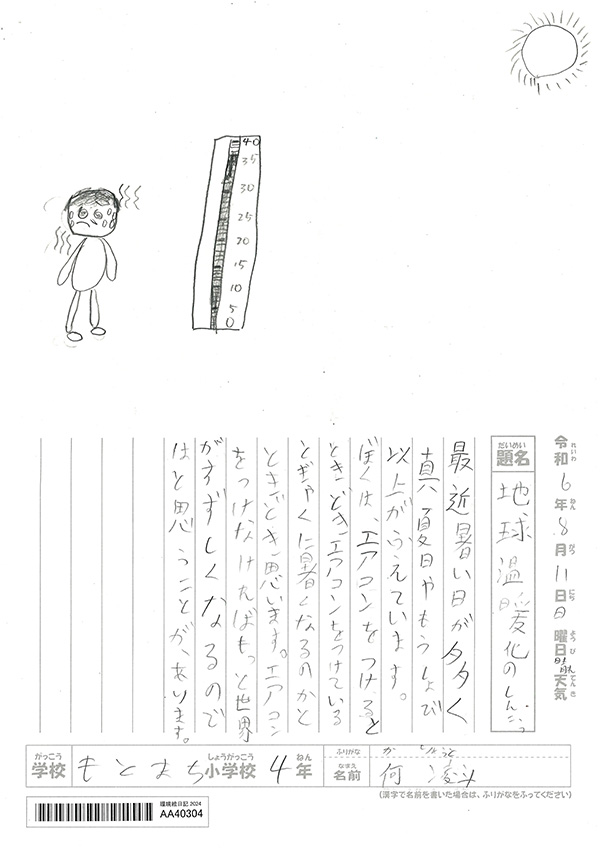 40
35
30
25
20
15
10
5
0
令和6年8月11日日曜日晴天気
れいわ ねん がつ にち ようび てんき
だいめい
題名 地球温暖化のしんこう
最近暑い日が多く
真夏日やもうしょび
以上がふえています。
ぼくは、エアコンをつけると
ときどきエアコンをつけている
とぎゃくに暑くなるのかと
ときどき思います。エアコン
をつけなければもっと世界
がすずしくなるので
はと思うことが、あります。
がっこう しょうがっこう ねん
学校 もとまち小学校 4年
ふりがな か しゅんと
なまえ
名前 何 凌斗
(漢字で名前を書いた場合は、ふりがなをふってください)
環境絵日記 2024
AA40304